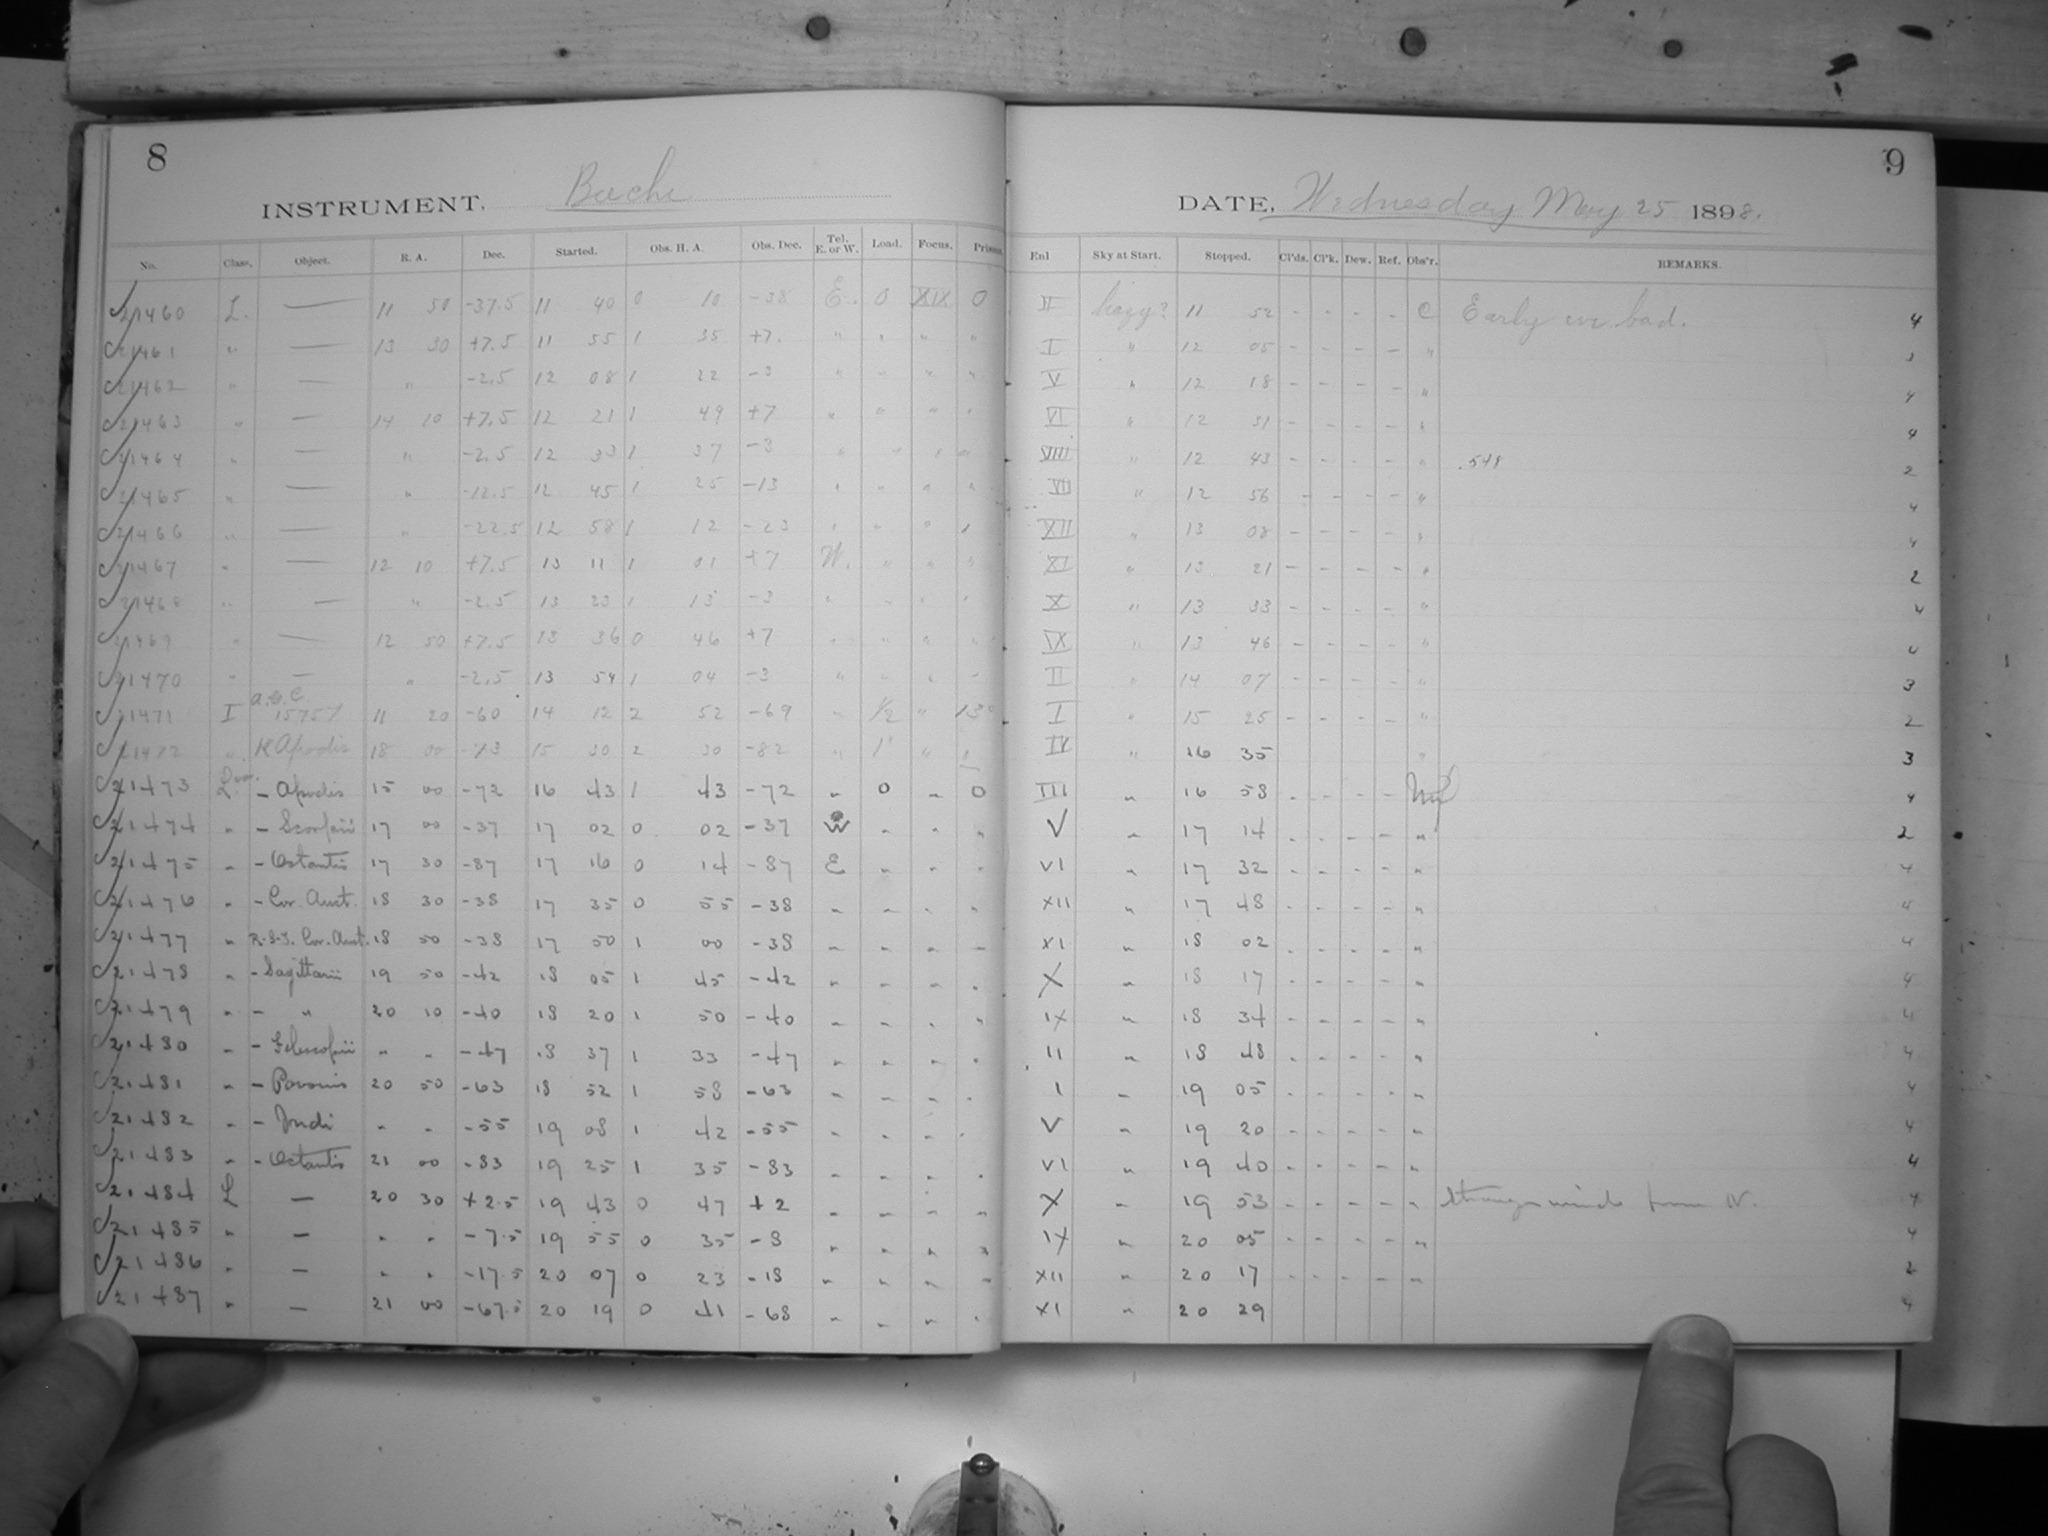 8
INSTRUMENT. Bache
No. Class. Object. R. A. Dec. Started. Obs. H. A. Obs. Dec. Tel. E. or W. Load. Focus. Prisms.
21460 L. — 11 50 -37.5 11 40 0 10 -38 E. 0 XIX 0
21461 " — 13 30 +7.5 11 55 1 35 +7. " " " "
21462 " — " -2.5 12 08 1 22 -3 " " " "
21463 " — 14 10 +7.5 12 21 1 49 +7 " " " "
21464 " — " -2.5 12 33 1 37 -3 " " " "
21465 " — " -12.5 12 45 1 25 -13 " " " "
21466 " — " -22.5 12 58 1 12 -23 " " " "
21467 " — 12 10 +7.5 13 11 1 01 +7 W. " " "
21468 " — " -2.5 13 23 1 13 -3 " " " "
21469 " — 12 50 +7.5 13 36 0 46 +7 " " " "
21470 " — " -2.5 13 54 1 04 -3 " " " "
21471 I 15757 11 20 -60 14 12 2 52 -69 " 1/2 " 13°
21472 " K Apodis 18 00 -73 15 30 2 30 -82 " 1° " "
21473 L var. - Apodis 15 00 -72 16 43 1 43 -72 " 0 " 0
21474 " - Scorpii 17 00 -37 17 02 0 02 -37 W " " "
21475 " - Octantis 17 30 -87 17 16 0 14 -87 E " " "
21476 " - Cor. Aust. 18 30 -38 17 35 0 55 -38 " " " "
21477 " R.S.T. Cor. Aust. 18 50 -38 17 50 1 00 -38 " " " "
21478 " - Sagittarii 19 50 -42 18 05 1 45 -42 " " " "
21479 " - " 20 10 -40 18 20 1 50 -40 " " " "
21480 " - Telescopii " " -47 18 37 1 33 -47 " " " "
21481 " - Pavonis 20 50 -63 18 52 1 58 -63 " " " "
21482 " - Indi " " -55 19 08 1 42 -55 " " " "
21483 " - Octantis 21 00 -83 19 25 1 35 -83 " " " "
21484 L — 20 30 +2.5 19 43 0 47 +2 " " " "
21485 " — " " -7.5 19 55 0 35 -8 " " " "
21486 " — " " -17.5 20 07 0 23 -18 " " " "
21487 " — 21 00 -67.5 20 19 0 41 -68 " " " "
9
DATE, Wednesday May 25 1898.
Enl Sky at Start. Stopped. Cl'ds. Cl'k. Dew. Ref. Obs'r. REMARKS.
II hazy? 11 52 - - - - C Early eve bad. 4
I " 12 05 - - - - " 3
V " 12 18 - - - - " 4
VI " 12 31 - - - - " 4
VIII " 12 43 - - - - " .548 2
VII " 12 56 - - - - " 4
XII " 13 08 - - - - " 4
XI " 13 21 - - - - " 2
X " 13 33 - - - - " 4
IX " 13 46 - - - - " 4
II " 14 07 - - - - " 3
I " 15 25 - - - - " 2
IV " 16 35 " 3
III " 16 58 - - - - 4
V " 17 14 - - - - " 2
VI " 17 32 - - - - " 4
XII " 17 48 - - - - " 4
XI " 18 02 - - - - " 4
X " 18 17 - - - - " 4
IX " 18 34 - - - - " 4
II " 18 48 - - - - " 4
I " 19 05 - - - - " 4
V " 19 20 - - - - " 4
VI " 19 40 - - - - " 4
X " 19 53 - - - - " Strong wind from N. 4
IX " 20 05 - - - - " 4
XII " 20 17 - - - - " 2
XI " 20 29 4